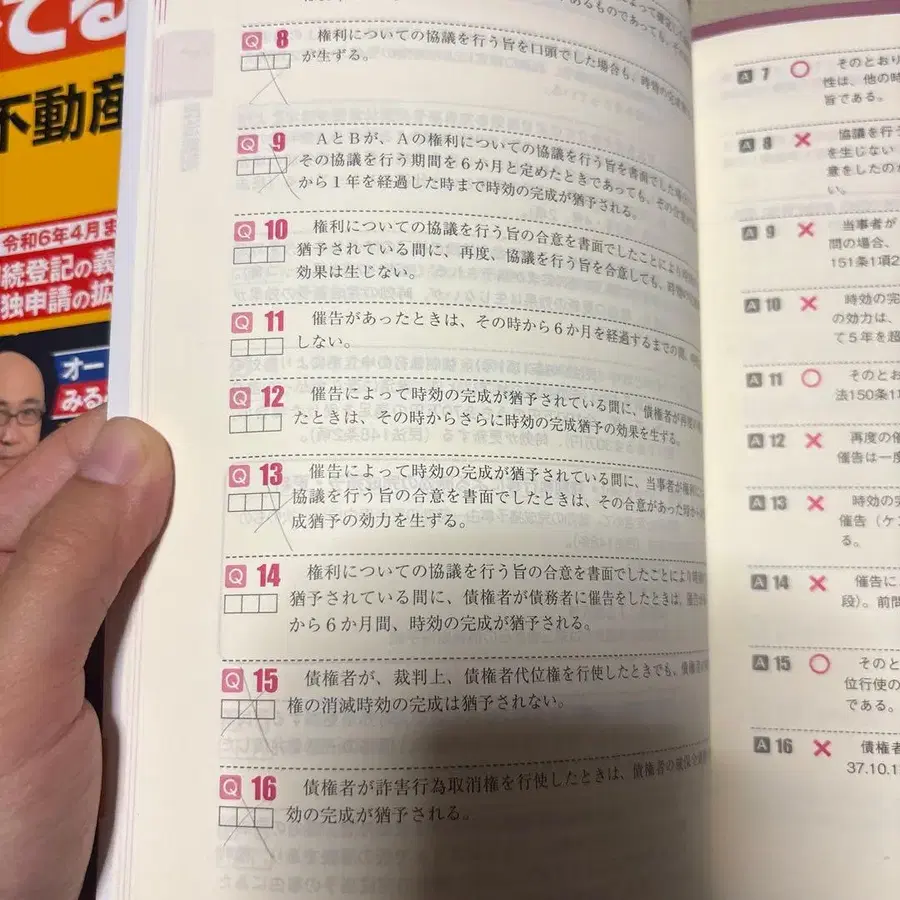 てる
不動産
令和6年4月ま
続登記の義
独申請の拡
オー
みる
Q 8 権利についての協議を行う旨を口頭でした場合も、時効の完成
が生ずる。
Q 9 AとBが、Aの権利についての協議を行う旨を書面でした場合
その協議を行う期間を6か月と定めたときであっても、その合意
から1年を経過した時まで時効の完成が猶予される。
Q 10 権利についての協議を行う旨の合意を書面でしたことにより時効
猶予されている間に、再度、協議を行う旨を合意しても、時効の
効果は生じない。
Q 11 催告があったときは、その時から6か月を経過するまでの間、
しない。
Q 12 催告によって時効の完成が猶予されている間に、債権者が再度
たときは、その時からさらに時効の完成猶予の効果を生ずる。
Q 13 催告によって時効の完成が猶予されている間に、当事者が権利に
協議を行う旨の合意を書面でしたときは、その合意があった時から
成猶予の効力を生ずる。
Q 14 権利についての協議を行う旨の合意を書面でしたことにより時効
猶予されている間に、債権者が債務者に催告をしたときは、催告
から6か月間、時効の完成が猶予される。
Q 15 債権者が、裁判上、債権者代位権を行使したときでも、債権者の
権の消滅時効の完成は猶予されない。
Q 16 債権者が詐害行為取消権を行使したときは、債権者の被保全債権
効の完成が猶予される。
A 7 ○ そのとおり
性は、他の時
旨である。
A 8 × 協議を行う
を生じない
意をしたのが
い。
A 9 × 当事者が
間の場合、
151条1項2
A 10 × 時効の完
の効力は、
て5年を超
A 11 ○ そのとお
法150条1
A 12 × 再度の催
催告は一度
A 13 × 時効の完
催告(ケン
る。
A 14 × 催告に
段)。前問
A 15 ○ そのと
位行使の
である。
A 16 × 債権者
37.10.1